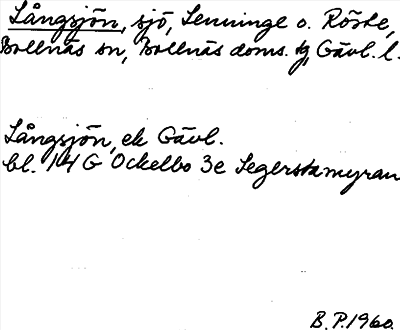 Långsjön, sjö, Lenninge o. Röste,
Bollnäs sn, Bollnäs doms. tg, Gävl. l.
Långsjön, ek Gävl.
bl. 14 G Ockelbo 3e Segerstamyran
B.P. 1960.